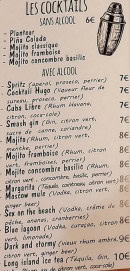 LES COCKTAILS
SANS ALCOOL 6€
- Planteur
- Piña Colada
- Mojito classique
- Mojito framboise
- Mojito concombre basilic
AVEC ALCOOL
- Spritz (aperol, prosecco, perrier) 7€
- Cocktail Hugo (liqueur fleur de 7€
sureau, prosecco, perrier)
- Cuba Libre (Rhum Havana, 7€
citron, coca-cola)
- Smash gin (Gin, citron vert, 7€
sucre de canne, )
- Mojito (Rhum, citron vert, 7€
menthe, perrier)
- Mojito framboise (Rhum, citron 8€
vert, framboises, perrier)
- Mojito concombre basilic (Rhum, 8€
citron vert, concombre, basilic, perrier)
- Margarita (Tequila, cointreau, citron vert) 8€
- Moscow mule (Vodka, citron vert, 8€
ginger beer)
- Sex on the beach (Vodka, crème de 8€
pêche, ananas, cranberries)
- Blue lagoon (Vodka, curaçao, citron 8€
vert, limonade)
- Dark and stormy (Rhum ambré, 9€
citron vert, ginger beer)
- Long island ice tea (Téquila, Gin, 10€